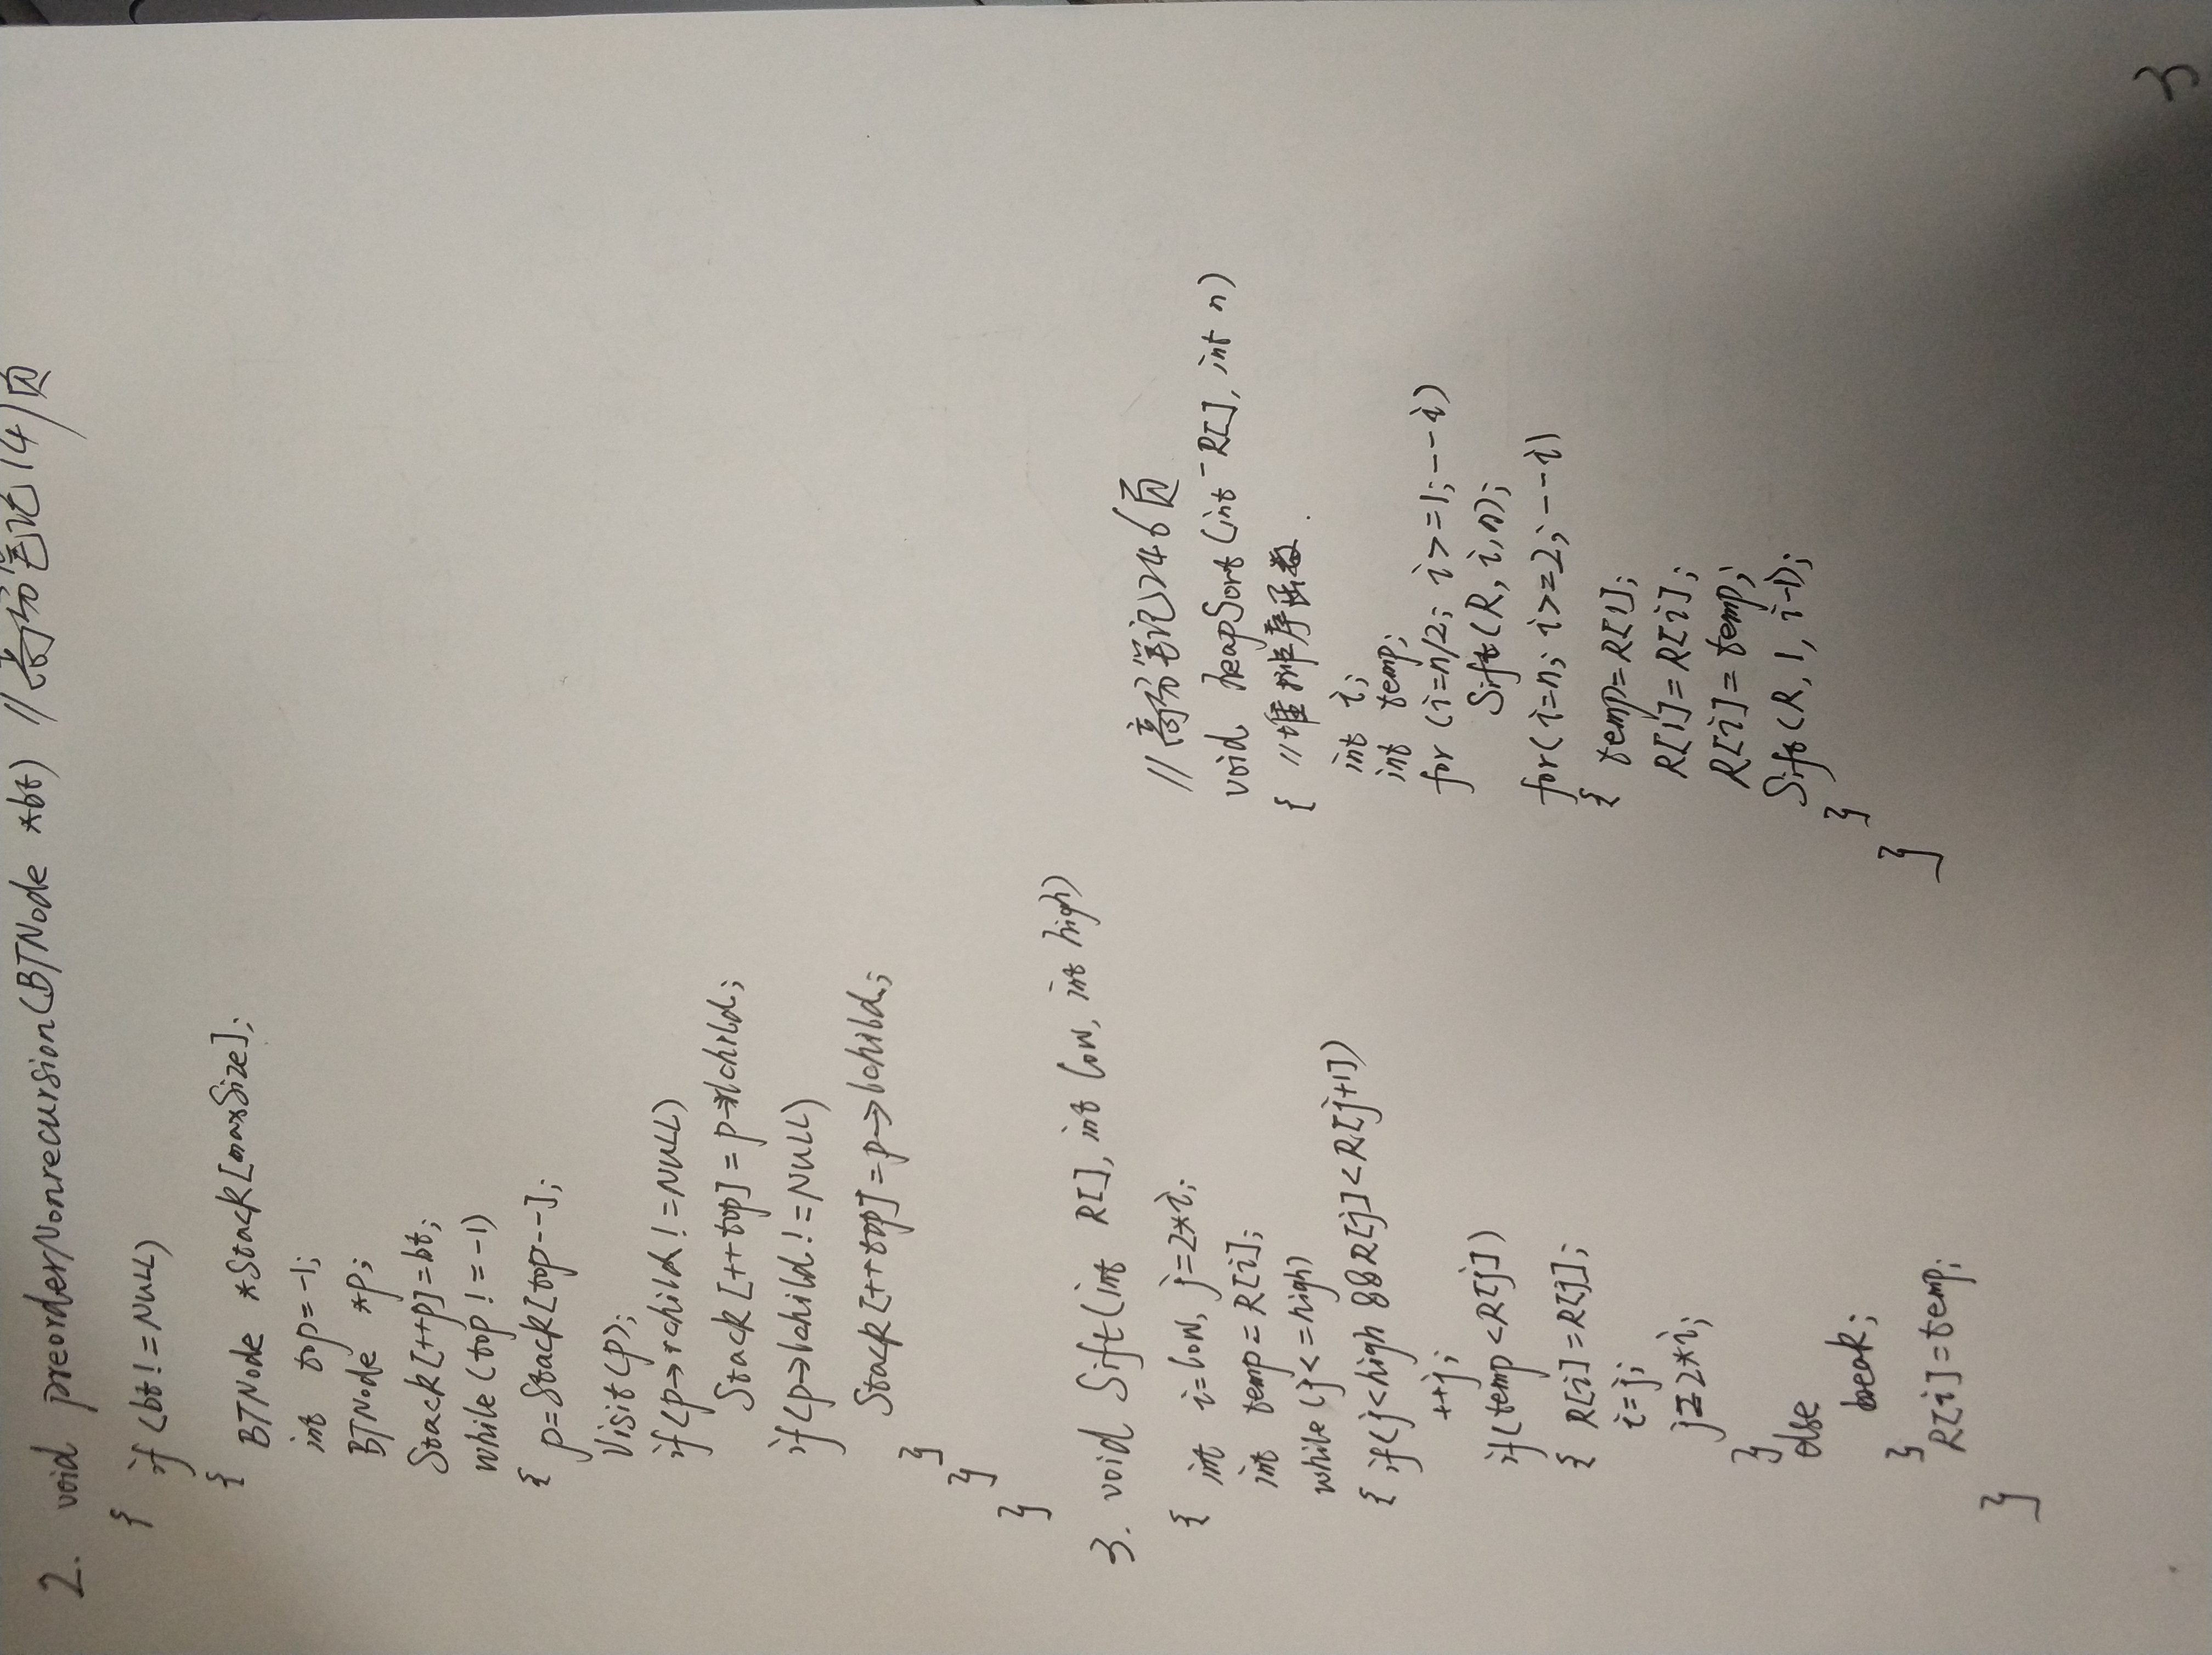 2. void preorderNonrecursion(BTNode *bt) //高分笔记141页
{ if(bt!=NULL)
{ BTNode *Stack[maxSize];
int top=-1;
BTNode *p;
Stack[++p]=bt;
while(top!=-1)
{ p=Stack[top--];
Visit(p);
if(p→rchild!=NULL)
Stack[++top]=p→rchild;
if(p→lchild!=NULL)
Stack[++top]=p→lchild;
}
}
}
3. void Sift(int R[], int low, int high)
{ int i=low, j=2*i;
int temp=R[i];
while(j<=high)
{ if(j<high &&R[j]<R[j+1])
++j;
if(temp<R[j])
{ R[i]=R[j];
i=j;
j=2*i;
}
else
break;
}
R[i]=temp;
}
//高分笔记246页
void heapSort(int R[], int n)
{ //堆排序函数
int i;
int temp;
for(i=n/2; i>=1;--i)
Sift(R,i,n);
for(i=n; i>=2;--i)
{ temp=R[1];
R[1]=R[i];
R[i]=temp;
Sift(R,1,i-1);
}
}
3